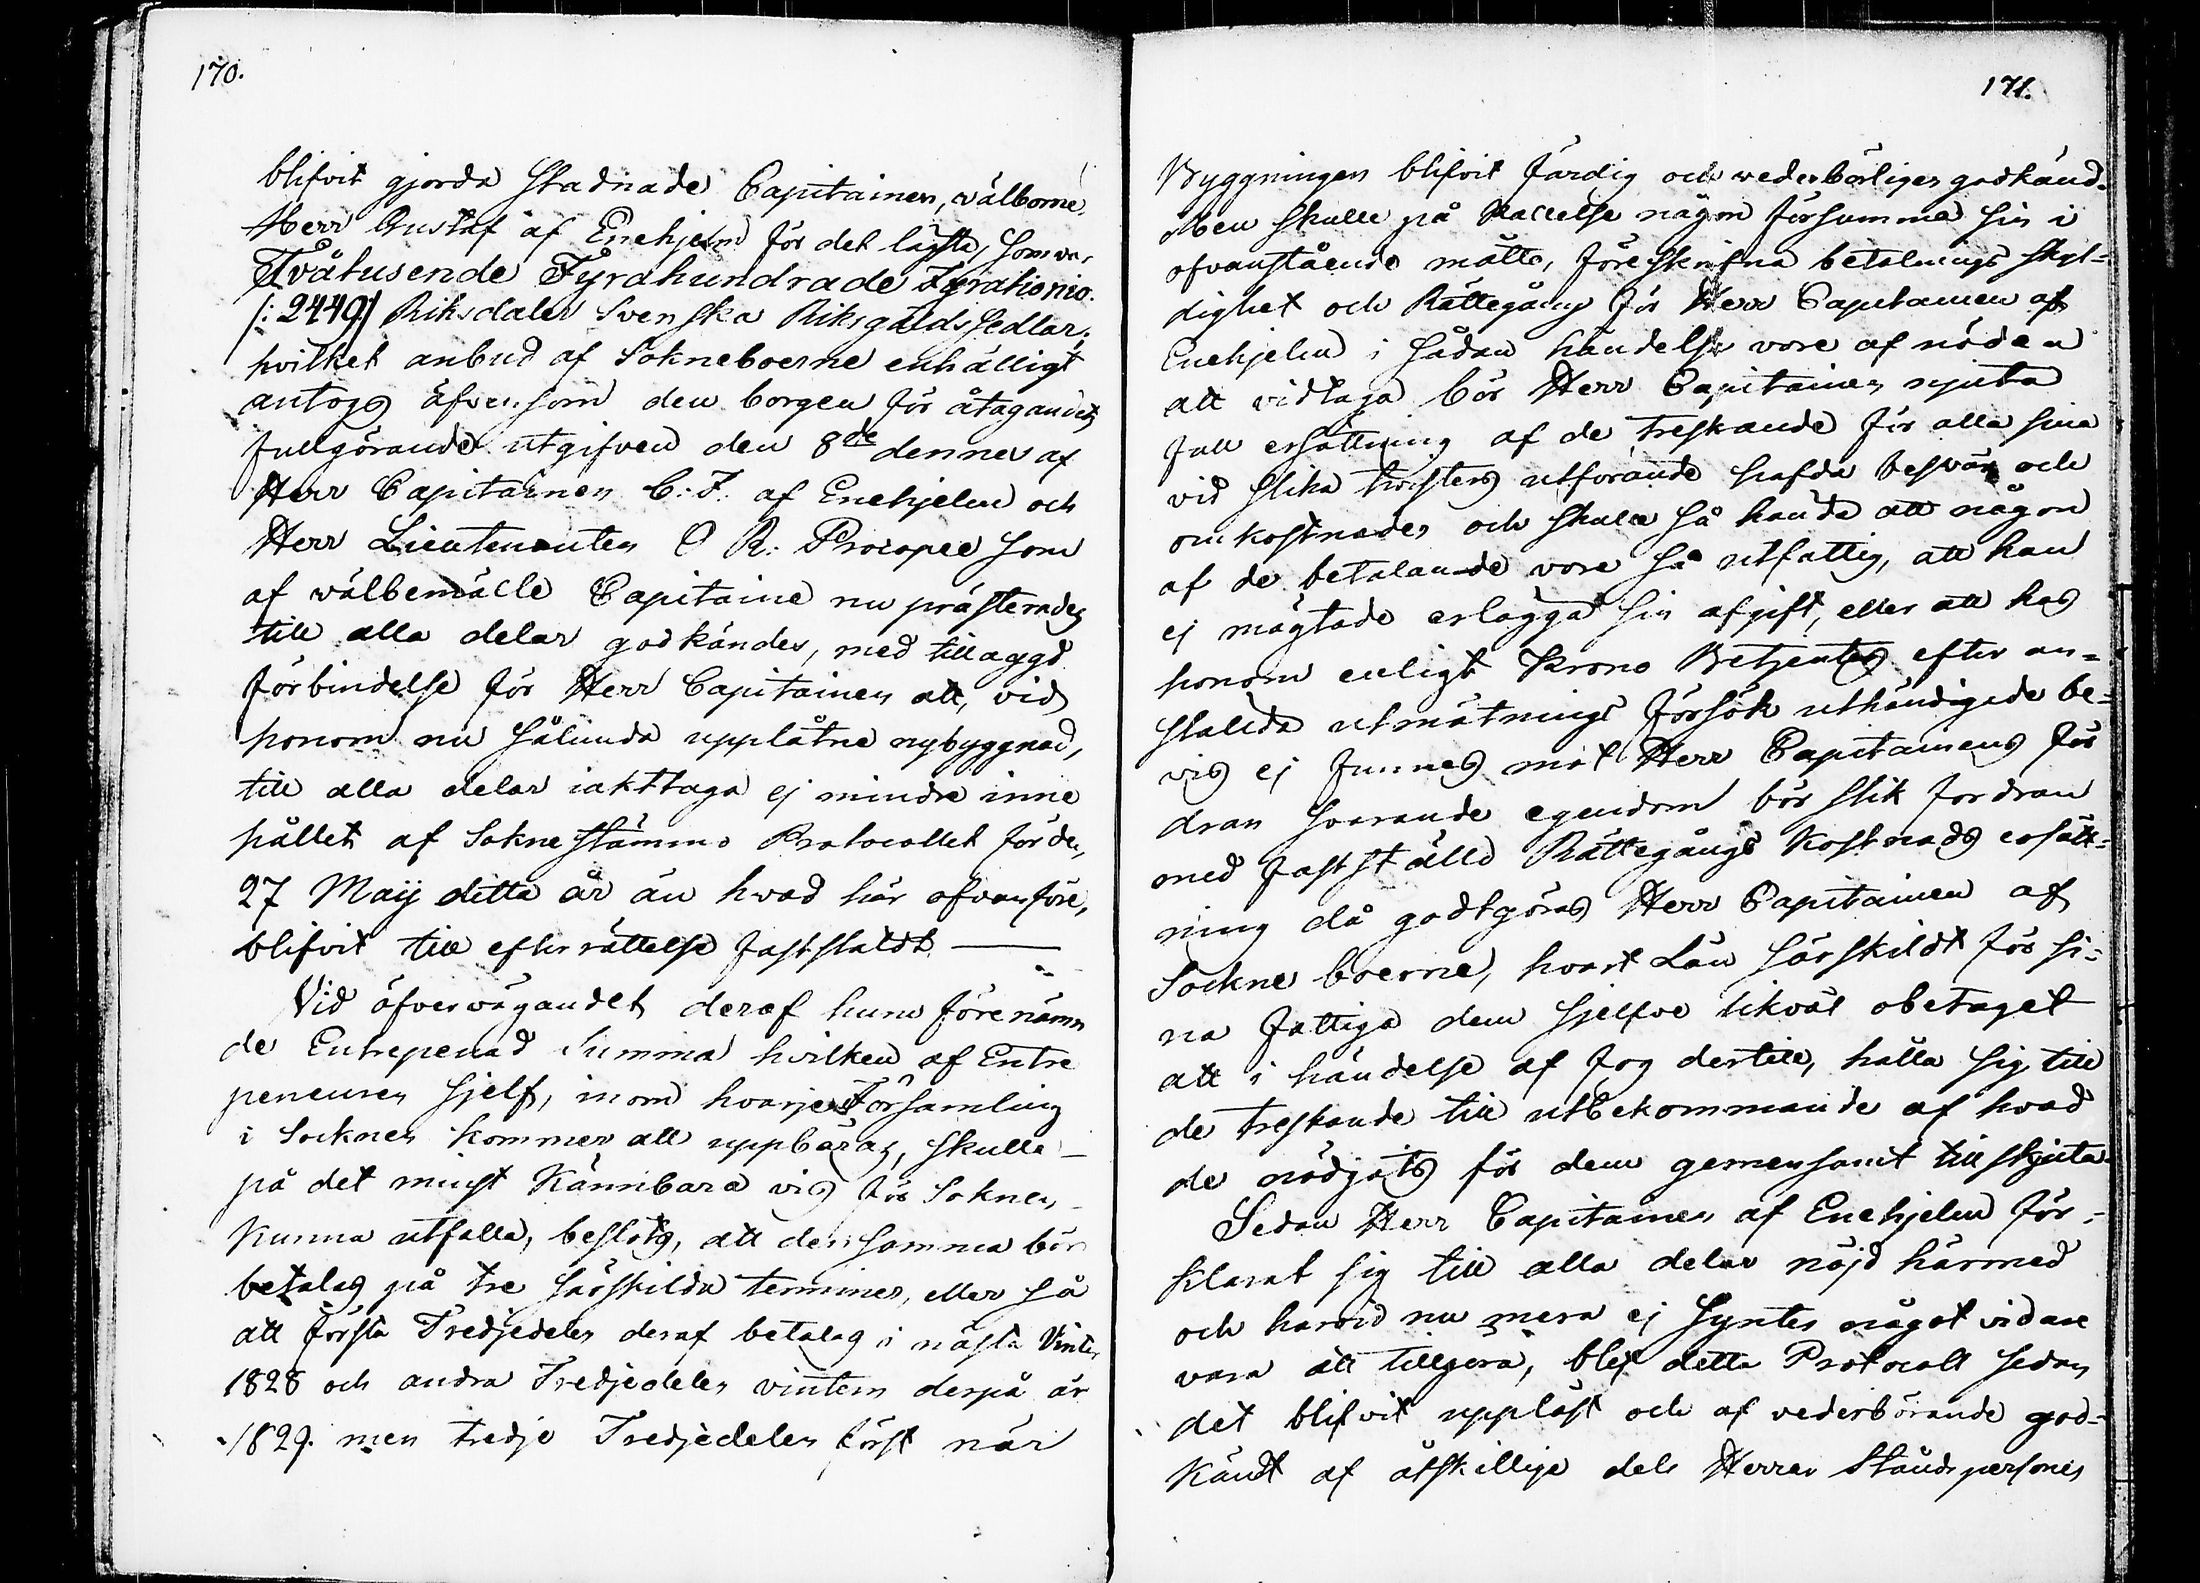 170.
blifvit gjorda stadnade Capitainen, välborne
Herr Gustaf af Enehjelm för det lägsta, som var
Tvåtusende Fyrahundrade Fyrationio
/: 2449 :/ Riksdaler Svenska Riksgäldssedlar,
hvilket anbud af Sokneboerne enhälligt
antogs äfvensom den borgen för åtagandets
fullgörande utgifven den 8de dennes af
Herr Capitainen C: F: af Enehjelm och
Herr Lieutenanten C R: Procopee som
af wälbemälte Capitaine nu præsterades
till alla delar godkändes, med tillagd
förbindelse för Herr Capitainen att, vid
honom nu sålunda upplåtne nybyggnad,
till alla delar iakttaga ej mindre inne
hållet af Soknestämmo Protocollet för den
27 Maij detta år än hvad här ofvanföre,
blifvit till efterrättelse faststäldt —
Vid öfvervägandet deraf huru förenämn
de Entrepenad Summa hvilken af Entre
peneuren sjelf, inom hvarje Församling
i Socknen kommer att uppbäras, skulle
på det minst Kännbara vis för Soknen
Kunna utfalla, beslöts, att densamma bör
betalas på tre särskilda terminer, eller så
att första Tredjedelen deraf betalas i nästa Vinter
1828 och andra Tredjedelen vintern derpå år
1829. men tredje Tredjedelen först när
171.
Byggningen blifvit färdig och vederbörligen godkänd.
Men skulle på  någon försumma sin i
ofvanstående måtto, föreskrifna betalnings skyl=
dighet och Rättegång för Herr Capitainen af
Enehjelm i sådan händelse vore af nöden
att vidtaga bör Herr Capitainen njuta
full ersättning af de treskande för alla sina
vid slika tvisters utförande hafda besvär och
omkostnader och skulle så hända att någon
af de betalande vore så utfattig, att han
ej mägtade erlägga sin afgift, eller att hos
honom enligt Krono Betjentes efter an=
stallda utmätnings försök uthändigade be=
vis ej funnes mot Herr Capitainens for
dran svarande egendom bör slik fordran
med fastställd Rättegångs Kostnads ersätt=
ning då godtgöras Herr Capitainen af
Sockne boerne, hvart Län särskildt för si=
na fattiga dem sjelfve likväl obetaget
att i händelse af fog dertill, hålla sig till
de treskande till utbekommande af hvad
de nödgats för dem gemensamt tillskjuta.
Sedan Herr Capitainen af Enehjelm för=
klarat sig till alla delar nöjd härmed
och härvid nu mera ej syntes något vidare
vara att tillgöra, blef detta Protocoll sedan
det blifvit uppläst och af vederbörande god=
Kändt af åtskillige dels Herrar Ståndspersoner